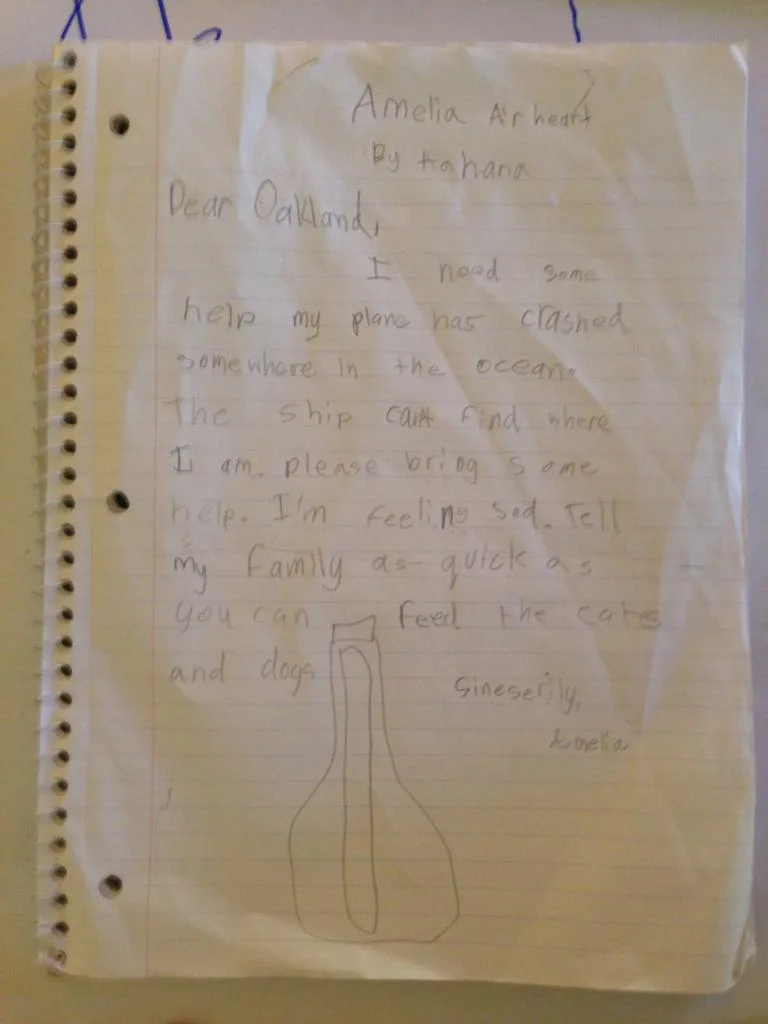 Amelia Airheart
By Kahana
Dear Oakland,
I need some
help my plane has crashed
somewhere in the ocean.
The ship can't find where
I am. please bring some
help. I'm feeling sad. Tell
my family as quick as
you can feed the cats
and dogs
Sineserily,
Amelia